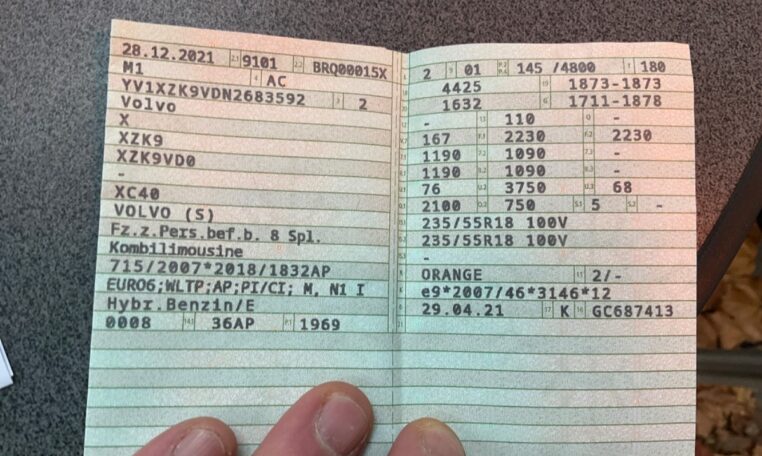 28.12.2021 2.1 9101 2.2 BRQ00015X
M1 4 AC
YV1XZK9VDN2683592 3 2
Volvo
X
XZK9
XZK9VD0
-
XC40
VOLVO (S)
Fz.z.Pers.bef.b. 8 Spl.
Kombilimousine
715/2007*2018/1832AP
EURO6;WLTP;AP;PI/CI; M, N1 I
Hybr.Benzin/E
0008 14.1 36AP P.1 1969
2 9 01 P.2 P.4 145 /4800 T 180
4425 19 1873-1873
1632 G 1711-1878
- 13 110 Q -
167 F.1 2230 F.2 2230
1190 7.2 1090 7.3 -
1190 8.2 1090 8.3 -
76 U.2 3750 U.3 68
2100 O.2 750 S.1 5 S.2 -
235/55R18 100V
235/55R18 100V
-
ORANGE 11 2/-
e9*2007/46*3146*12
29.04.21 17 K 16 GC687413